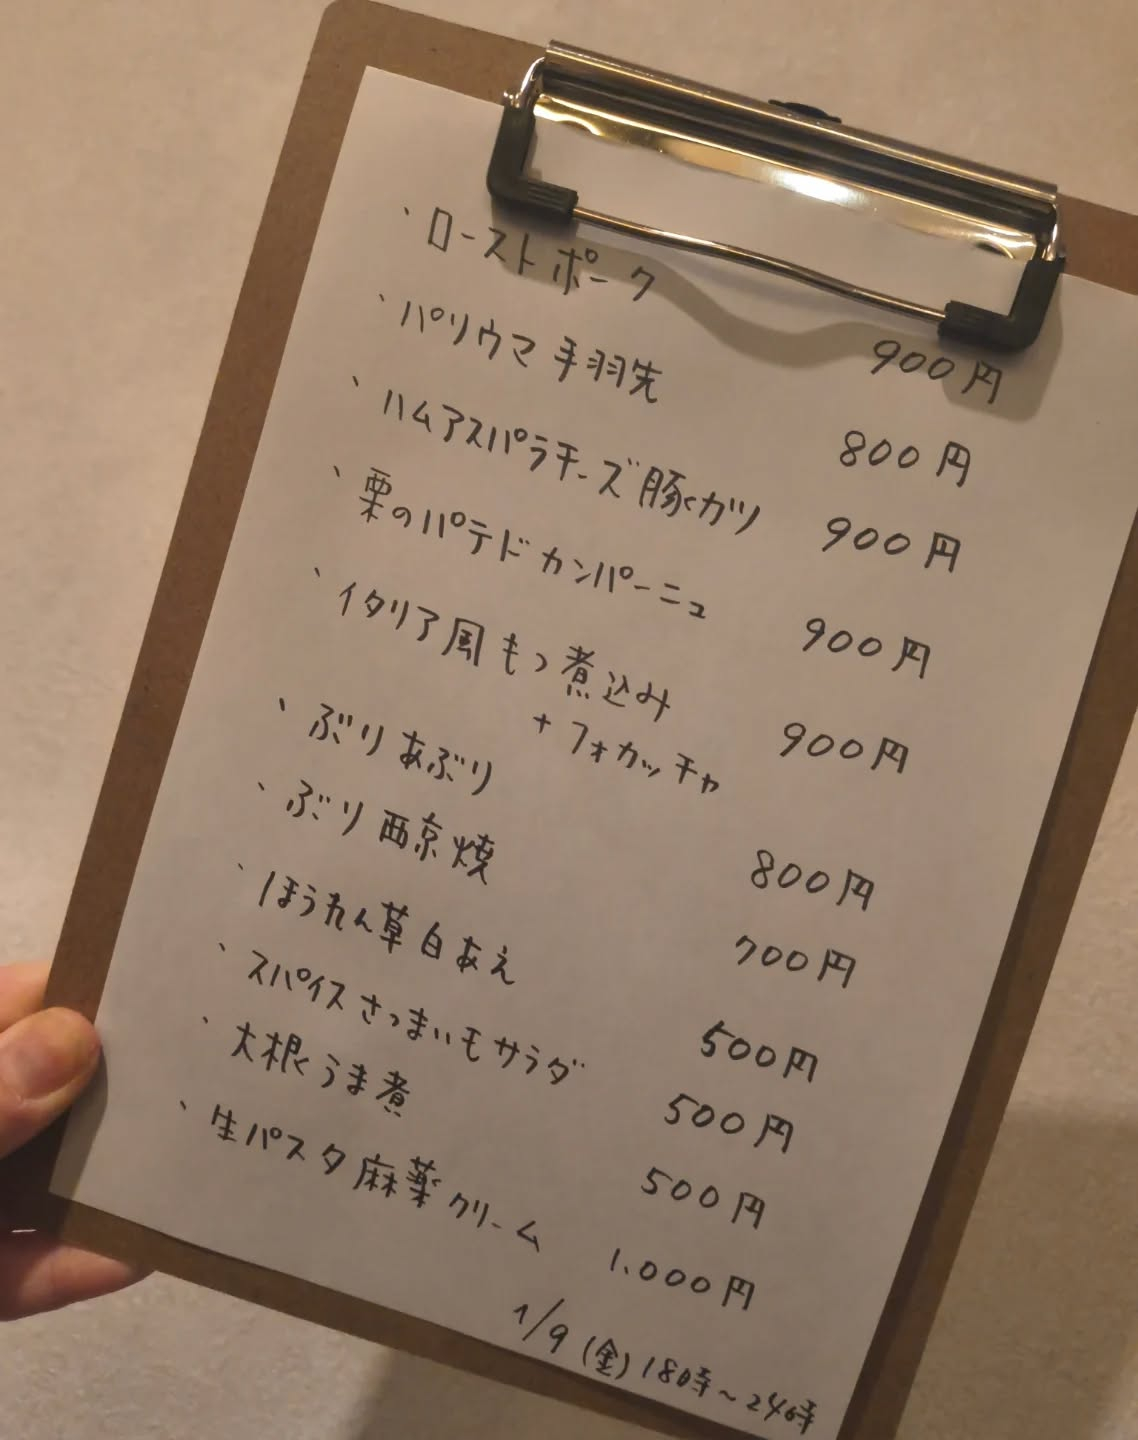 、ローストポーク 900円
、パリウマ手羽先 800円
、ハムアスパラチーズ豚カツ 900円
、栗のパテドカンパーニュ 900円
、イタリア風もつ煮込み 900円
+フォカッチャ
、ぶりあぶり 800円
、ぶり西京焼 700円
、ほうれん草白あえ 500円
、スパイスさつまいモサラダ 500円
、大根うま煮 500円
、生パスタ麻薬クリーム 1.000円
1/9(金)18時〜24時